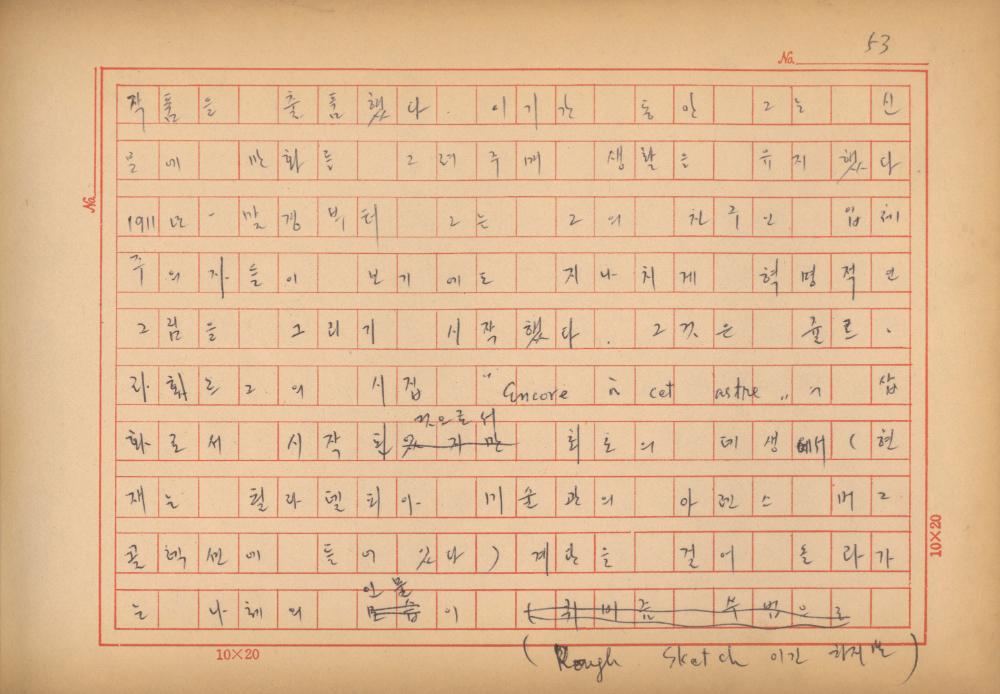 53
No.
작품을 출품했다. 이 기간 동안 그는 신
문에 만화를 그려주게 생활을 유지했다
1911년 말경부터 그는 그의 친구인 입체
No.
주의자들이 보기에도 지나치게 혁명적인
그림을 그리기 시작했다. 그것은 쥴르.
라훠르그의 시집 "Encore à cet astre"의 삽
것으로서
화로서 시작된 것이지만 최초의 데생에서 (현
재는 필라델피아 미술관의 아렌스버그
콜렉션에 들어 있다) 계단을 걸어 올라가
인물
는 나체의 모습이 (큐비즘 수법으로
10×20
10×20
(Rough Sketch 이긴 하지만)